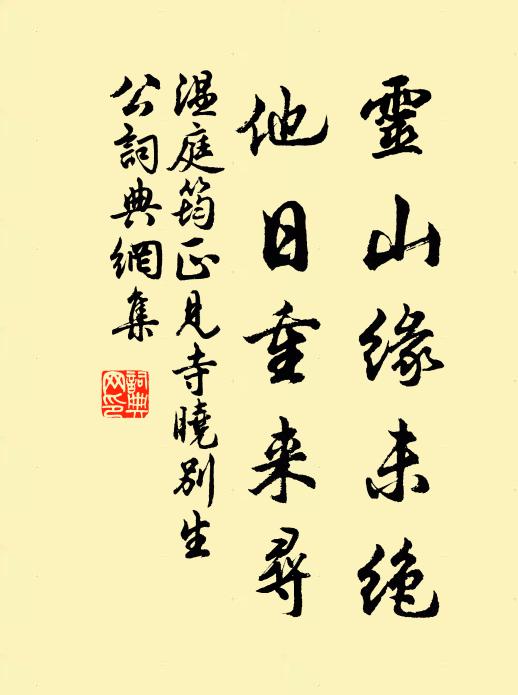 靈山緣未絶
他日重来尋
温庭筠正見寺曉别生
公詞典網集
詞典
网印